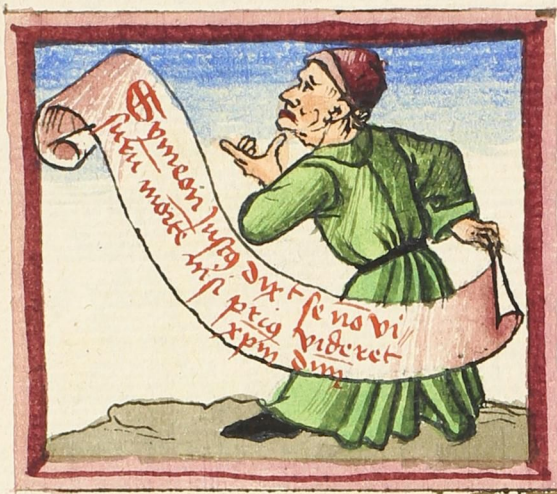 Symeon Justꝯ dixt se nō vi=
surū mortē nisi priꝯ videret
xp̄m dn̄m